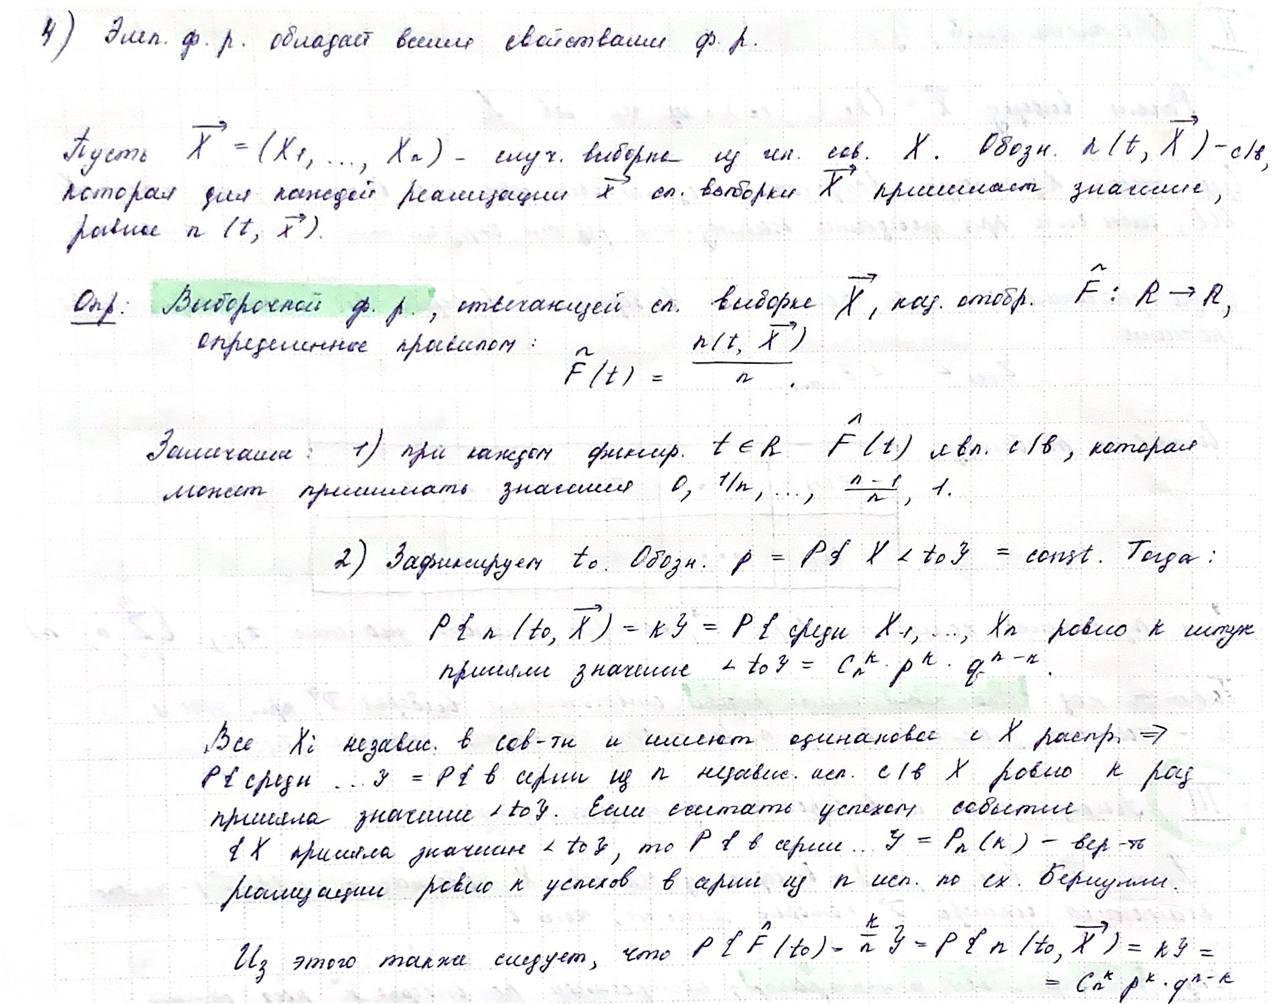 4) Эмп. ф. р. обладает всеми свойствами ф. р.
Пусть X⃗ = (X₁, ..., Xₙ) - случ. выборка из ген. сов. X. Обозн. n(t, X⃗) - с/в,
которая для каждой реализации x⃗ сл. выборки X⃗ принимает значение,
равное n(t, x⃗).
Опр: Выборочной ф. р., отвечающей сл. выборке X⃗, наз. отобр. F̂: R → R,
определенное правилом:
F̂(t) = n(t, X⃗)/n.
Замечание: 1) при каждом фиксир. t ∈ R F̂(t) явл. с/в, которая
может принимать значения 0, 1/n, ..., (n-1)/n, 1.
2) Зафиксируем t₀. Обозн. p = P{X < t₀} = const. Тогда:
P{n(t₀, X⃗) = k} = P{среди X₁, ..., Xₙ ровно k штук
приняли значение < t₀} = Cₙᵏ · pᵏ · qⁿ⁻ᵏ.
Все Xᵢ независ. в сов-ти и имеют одинаковое с X распр. ⇒
P{среди ...} = P{в серии из n независ. исп. с/в X ровно k раз
приняла значение < t₀}. Если считать успехом событие
{X приняла значение < t₀}, то P{в серии ...} = Pₙ(k) - вер-ть
реализации ровно k успехов в серии из n исп. по сх. Бернулли.
Из этого также следует, что P{F̂(t₀) = k/n} = P{n(t₀, X⃗) = k} =
= Cₙᵏ · pᵏ · qⁿ⁻ᵏ